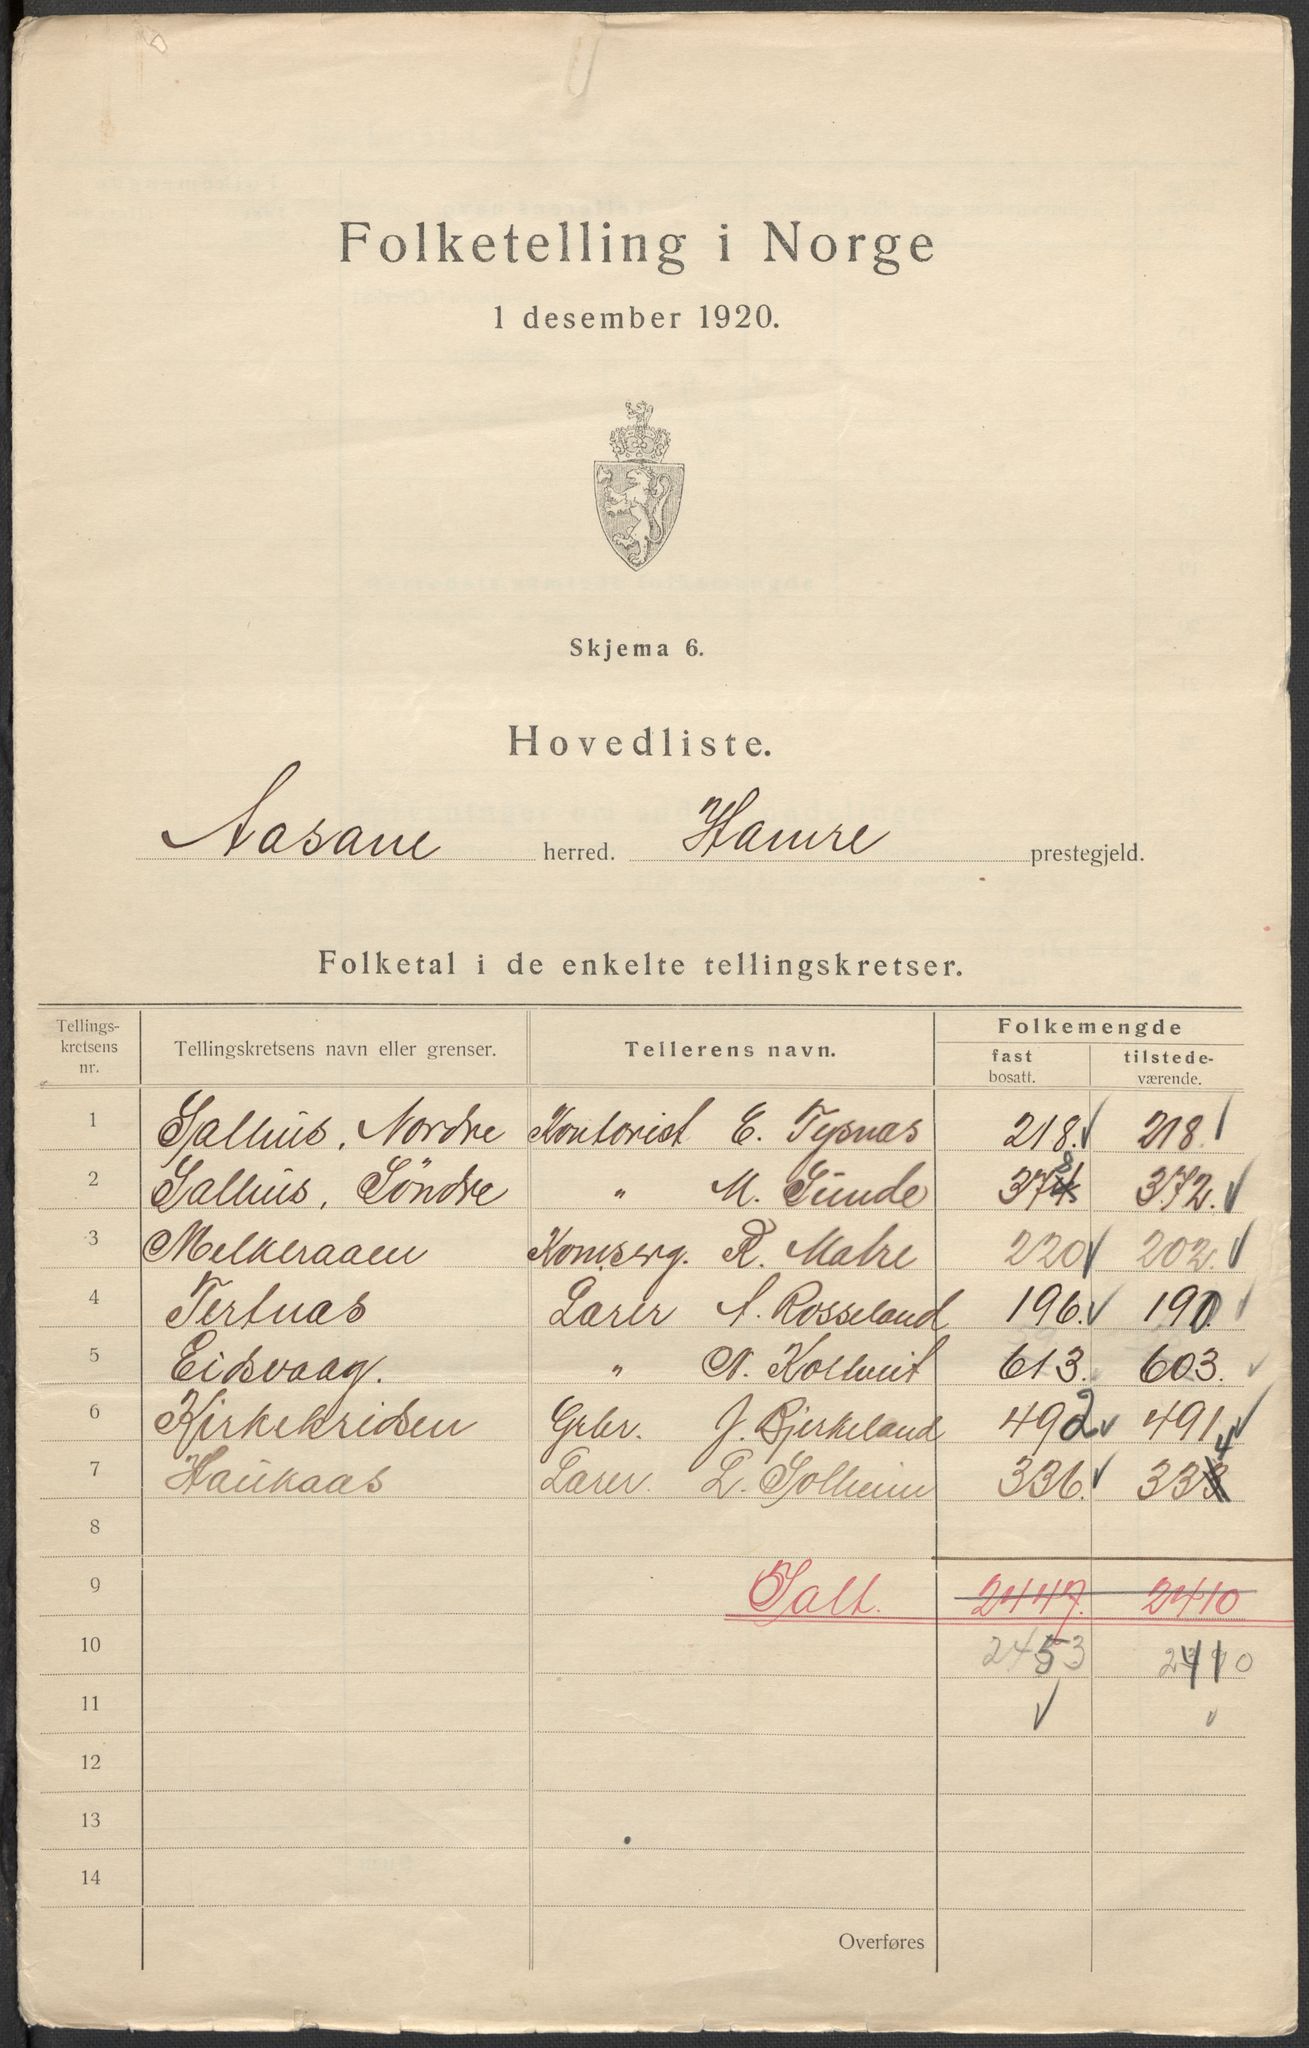 Folketelling i Norge
1 desember 1920.
Skjema 6.
Hovedliste.
Aasane herred. Hamre prestegjeld.
Folketal i de enkelte tellingskretser.
Tellings-kretsens nr. Tellingskretsens navn eller grenser. Tellerens navn. Folkemengde
fast bosatt. tilstede-værende.
1 Salhus, Nordre Kontorist E. Tysnæs 218. 218.
2 Salhus, Söndre " M. Sunde 378 372.
3 Melkeraaen R. Matre 220 202.
4 Tertnæs Lærer A. Rosseland 196. 190.
5 Eidsvaag. " N. Koltveit 613. 603.
6 Kirkekridsen Gbr. J. Bjerkeland 492 491
7 Haukaas Lærer L. Solheim 336. 334
8
9 Salt. 2447. 2410
10 2453
11
12
13
14
Overføres